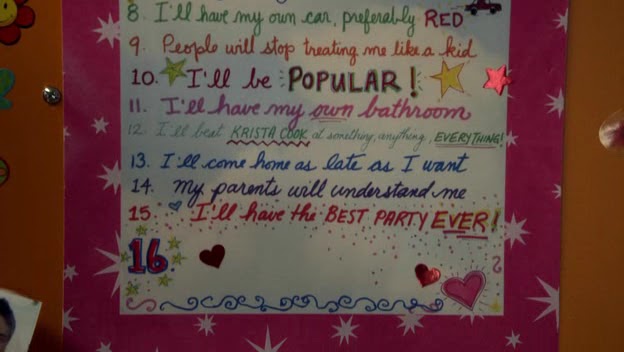 8. I'll have my own car, preferably RED
9. People will stop treating me like a kid
10. I'll be POPULAR!
11. I'll have my own bathroom
12. I'll beat KRISTA COOK at something, anything, EVERYTHING!
13. I'll come home as late as I want
14. my parents will understand me
15. I'll have the BEST PARTY EVER!
16.